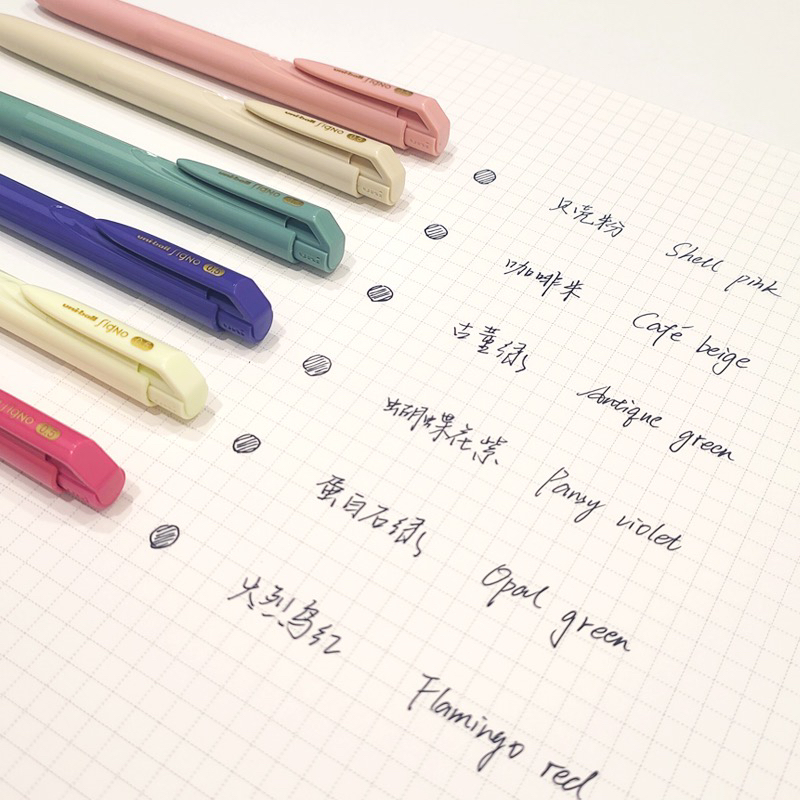 uni-ball Signo 0.5
uni-ball Signo 0.5
uni-ball Signo 0.5
uni-ball Signo 0.5
uni-ball Signo 0.5
Signo 0.5
贝壳粉 Shell pink
咖啡米 Café beige
古董绿 Antique green
蝴蝶花紫 Pansy violet
蛋白石绿 Opal green
火烈鸟红 Flamingo red